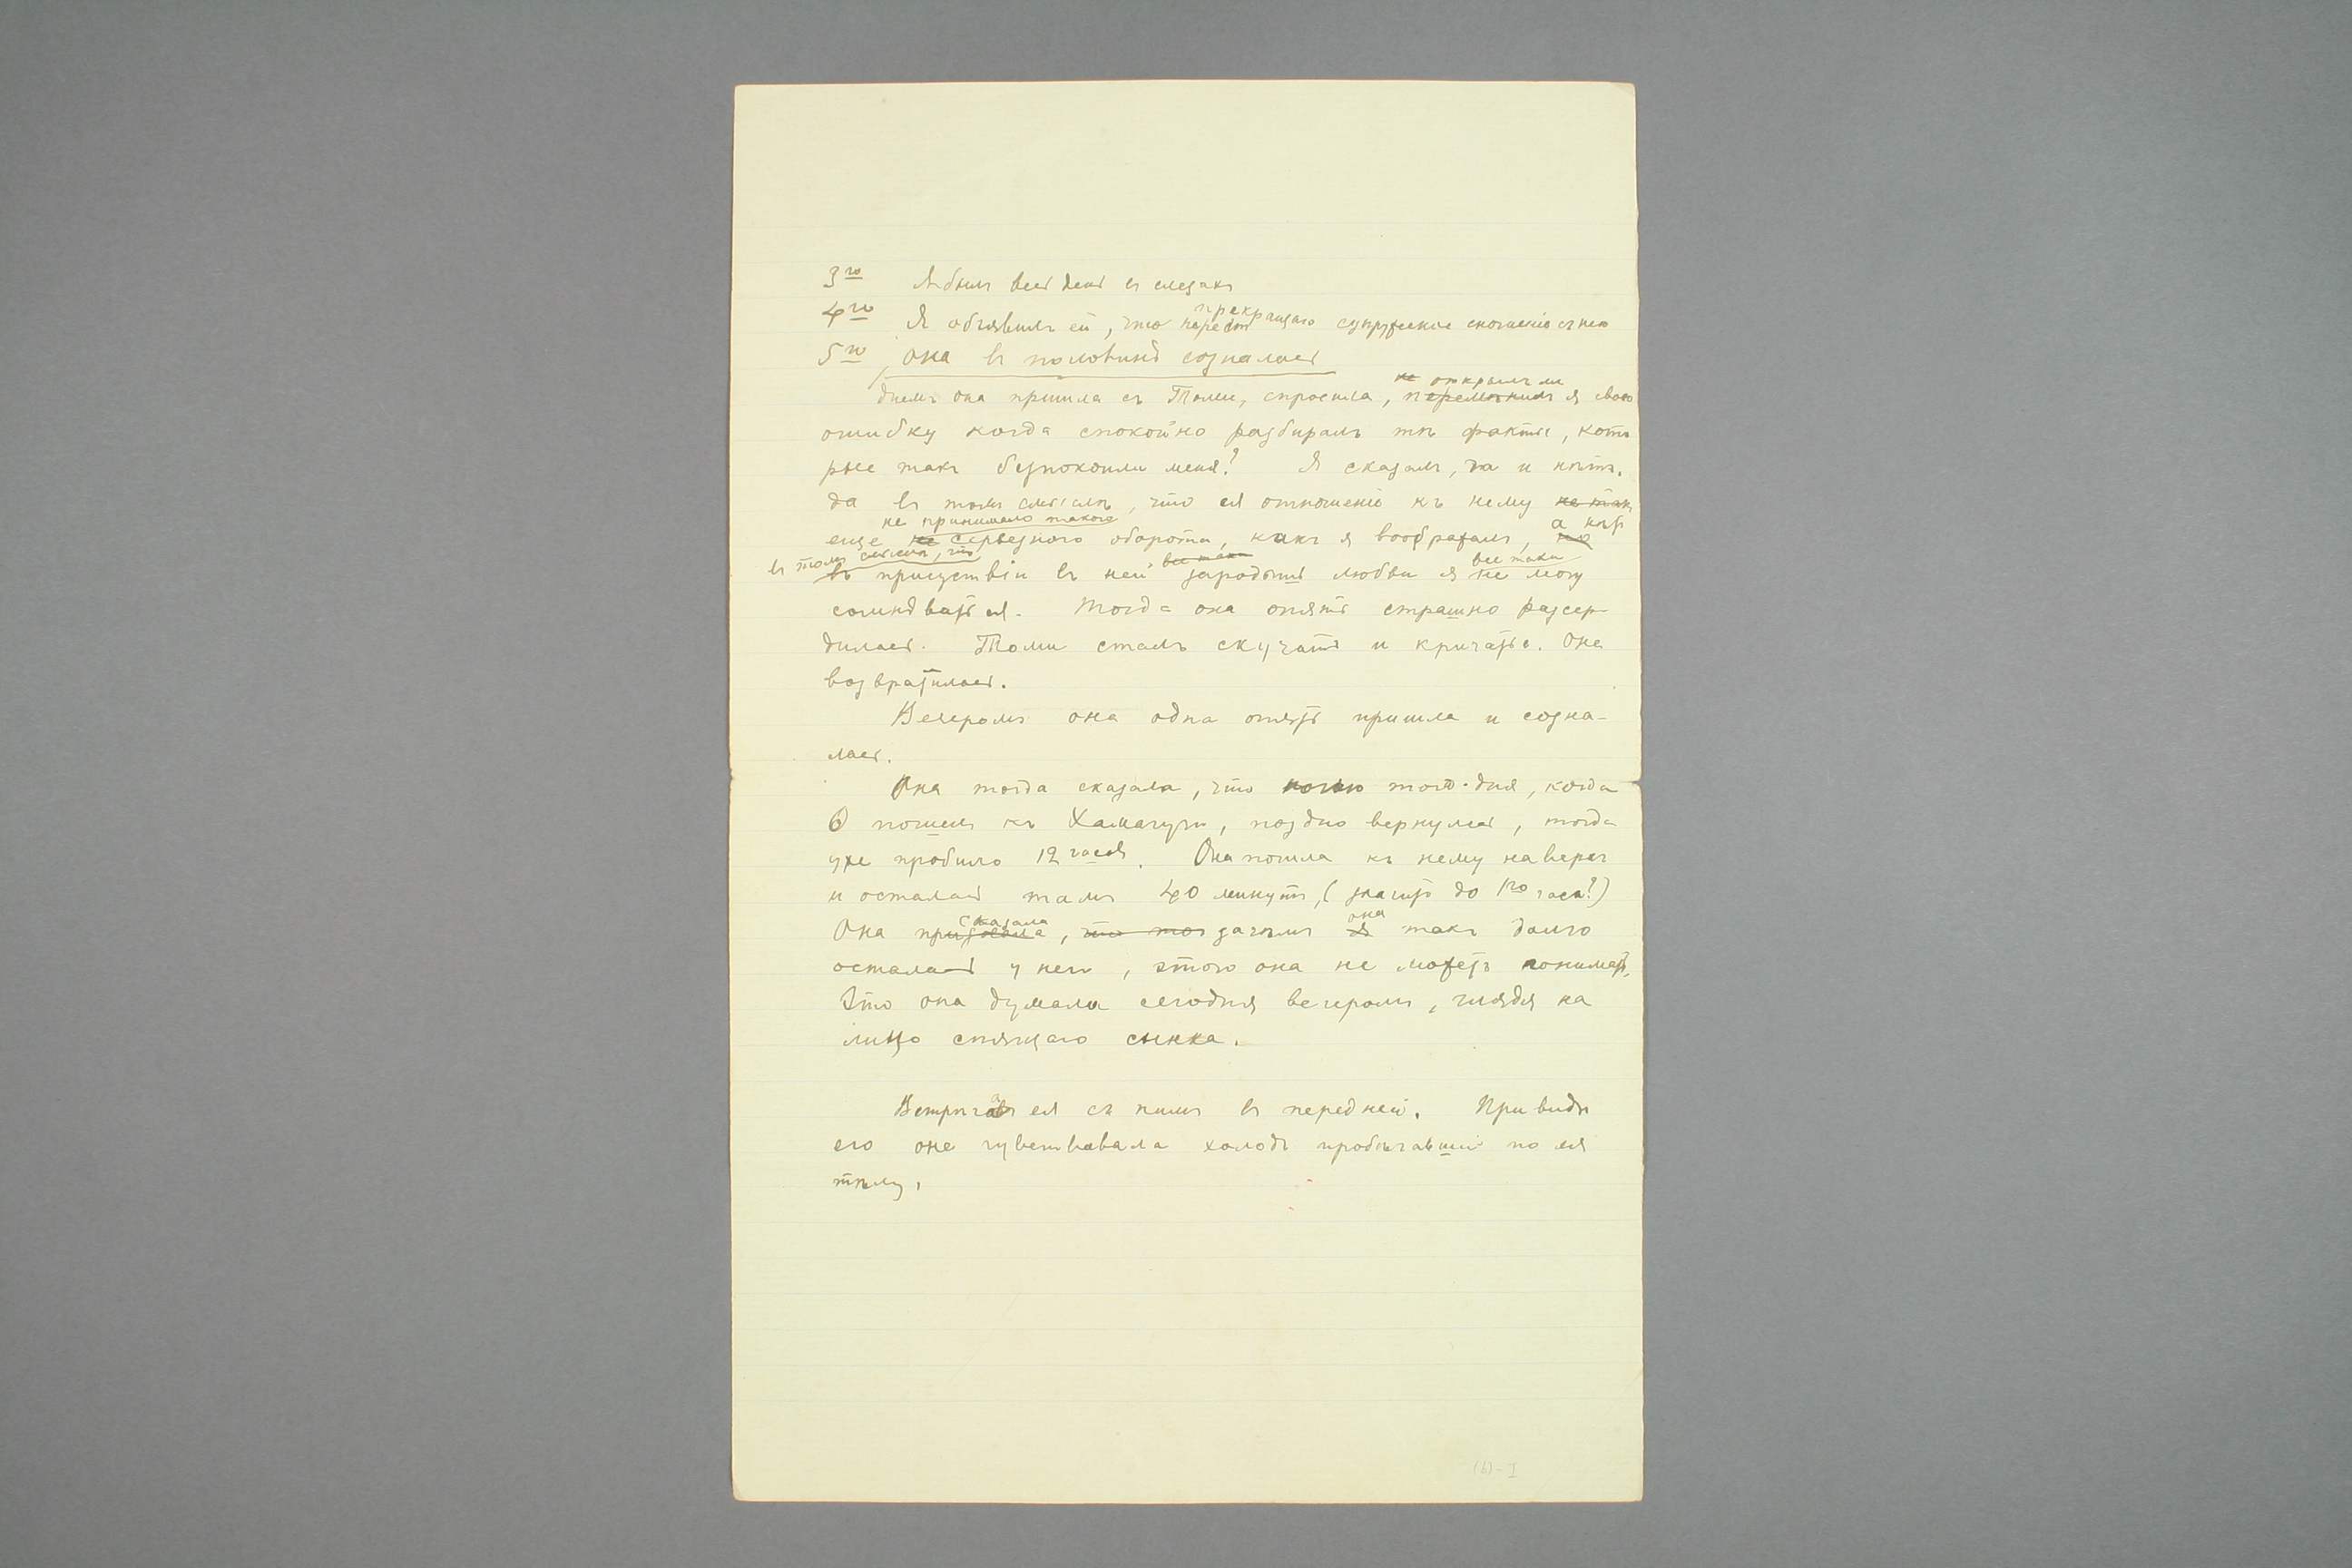 3го Я былъ весь день въ слезахъ
4го Я объявилъ ей, что прекращаю супружескіе сношенія съ нею
5го Она въ половинѣ созналась
днемъ она пришла съ Томи, спросила, открылъ ли я свою
ошибку когда спокойно разбиралъ тѣ факты, кото
рые такъ безпокоили меня? Я сказалъ, да и нѣтъ.
да въ томъ смыслѣ, что ея отношеніе къ нему не такъ
не принимало такого
еще не серьезного оборота, какъ я воображалъ, а нѣтъ
въ томъ смыслѣ, что все таки все таки
въ присутствіи въ ней зародышъ любви я не могу
сомнѣваться. Тогда она опять страшно разсер-
дилась. Томи сталъ скучать и кричать. Она
возвратилась.
Вечеромъ она одна опять пришла и созна-
лась.
Она тогда сказала, что ночью того дня, когда
О пошелъ къ Хамагучи, поздно вернулся, тогда
уже пробило 12 часовъ. Она пошла къ нему наверхъ
и осталась тамъ 40 минутъ, (значитъ до 1го часа?)
Она сказала, что зачѣмъ она такъ долго
осталась у него, этого она не можетъ понимать,
Это она думала сегодня вечеромъ, глядя на
лицо спящаго сынка.
Встрѣча ея съ нимъ въ передней. При видѣ
его она чувствовала холодъ пробѣгавшій по ея
тѣлу.
(6)-I